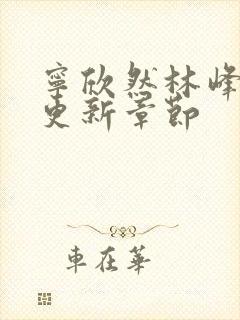 寧欣然林峰
更新章節
車在華